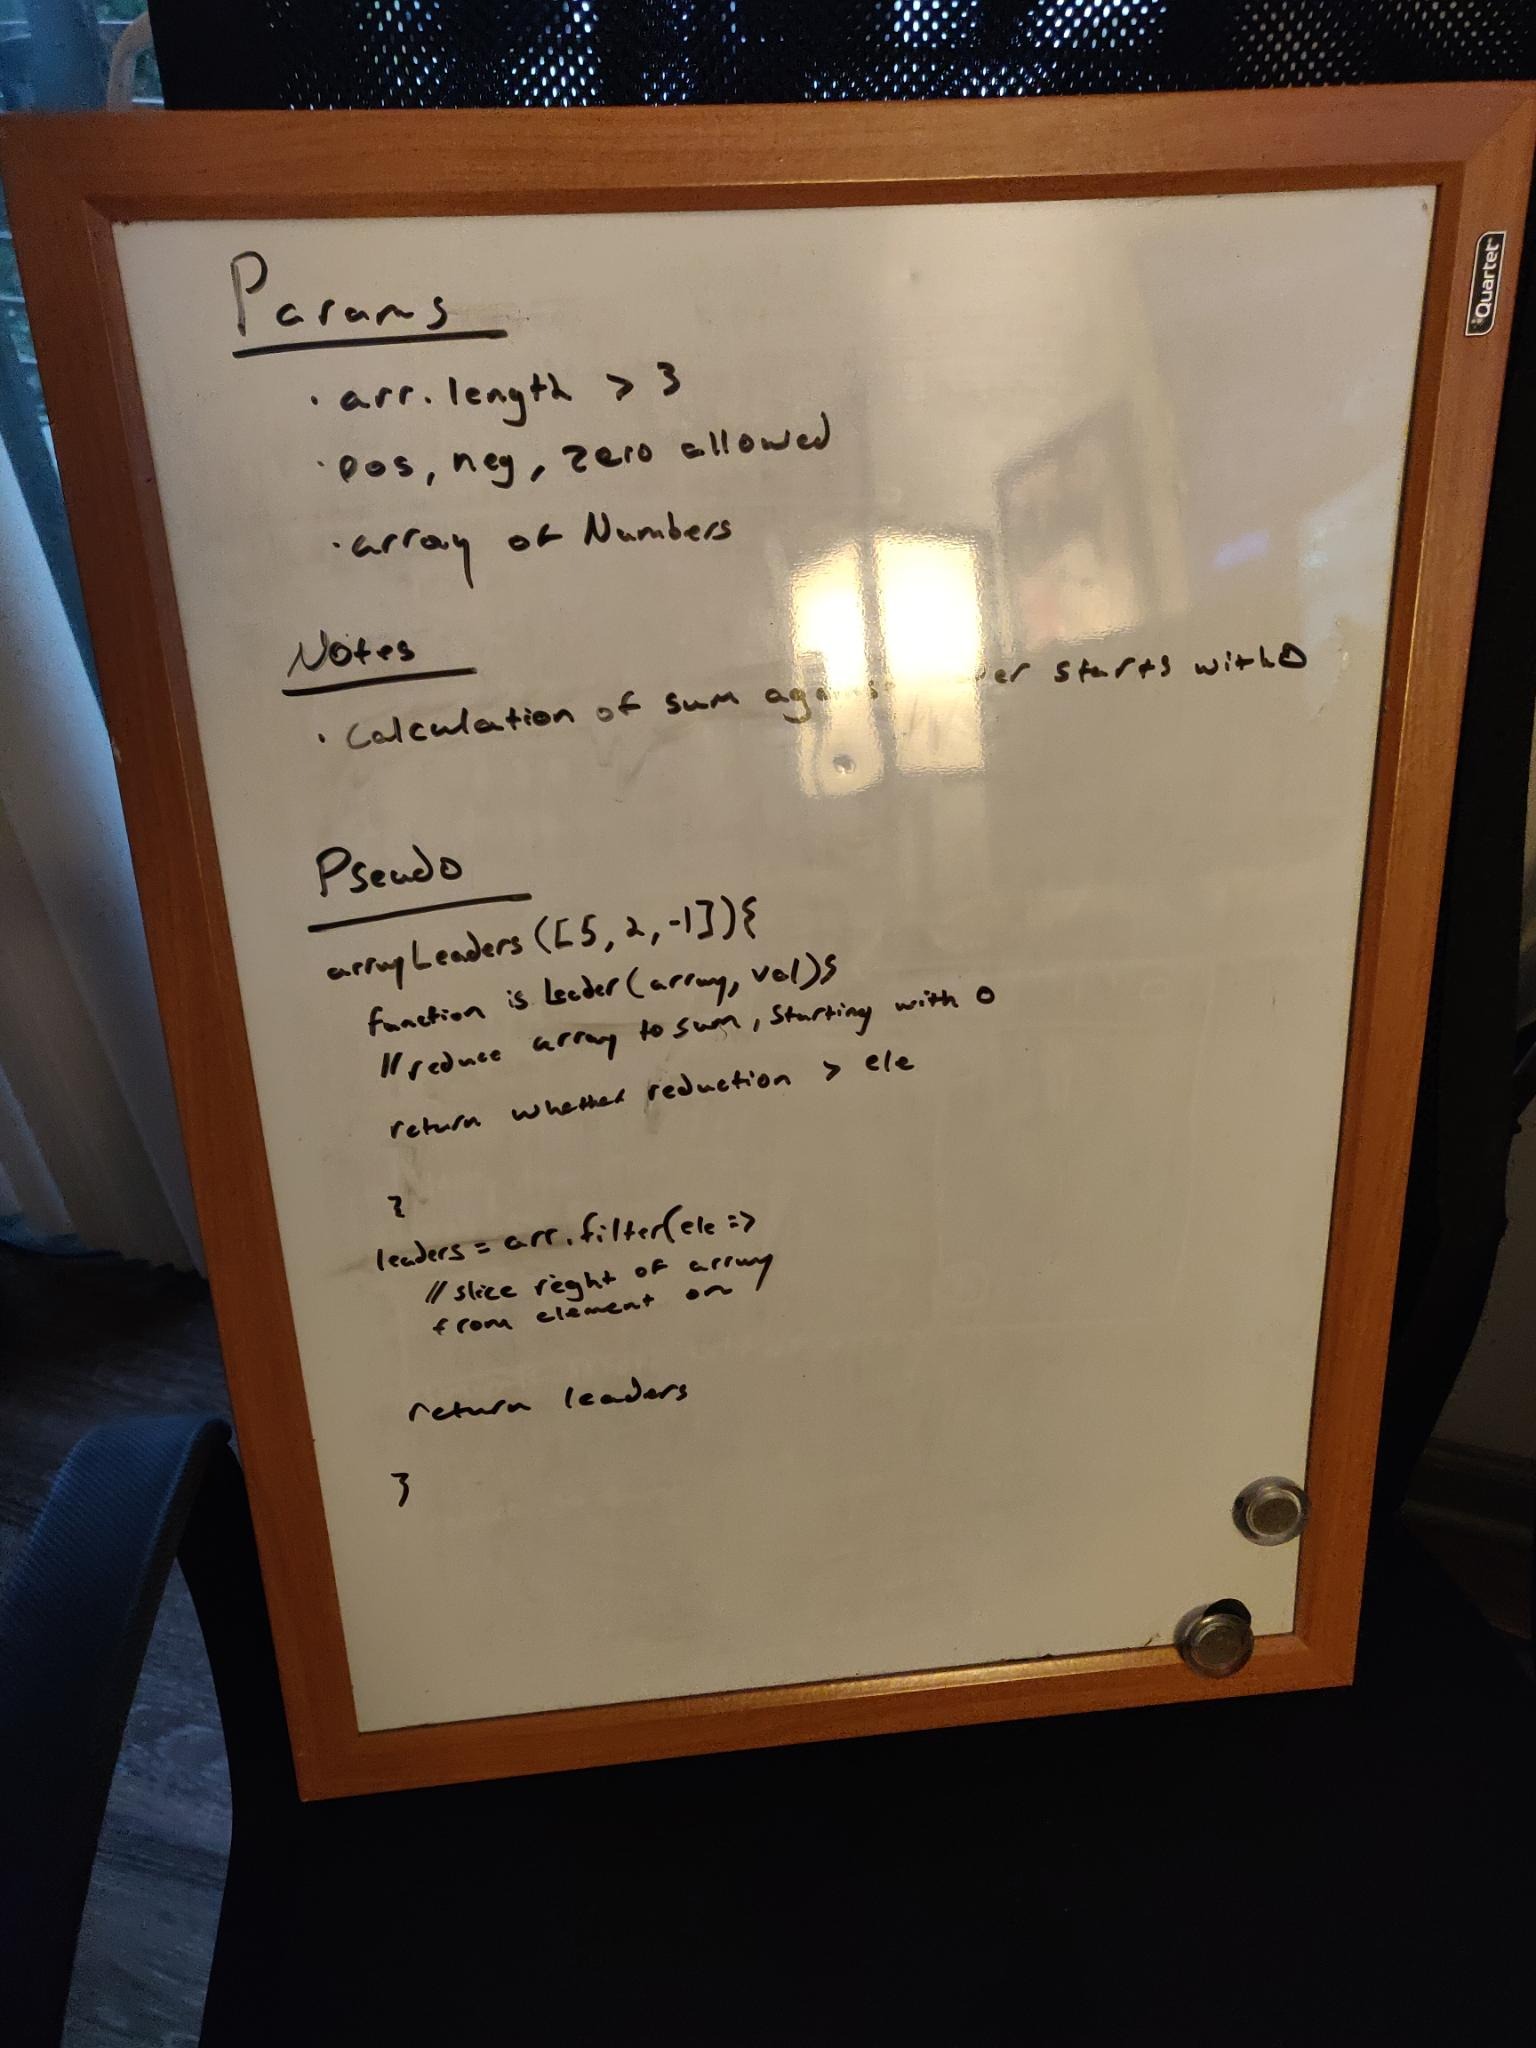 Quartet
Params
· arr.length > 3
· pos, neg, zero allowed
· array of Numbers
Notes
· Calculation of sum starts with 0
Pseudo
arrayLeaders([5, 2, -1]){
function isLeader(array, val){
//reduce array to sum, starting with 0
return whether reduction > ele
}
leaders = arr.filter(ele =>
//slice right of array
from element on
return leaders
}